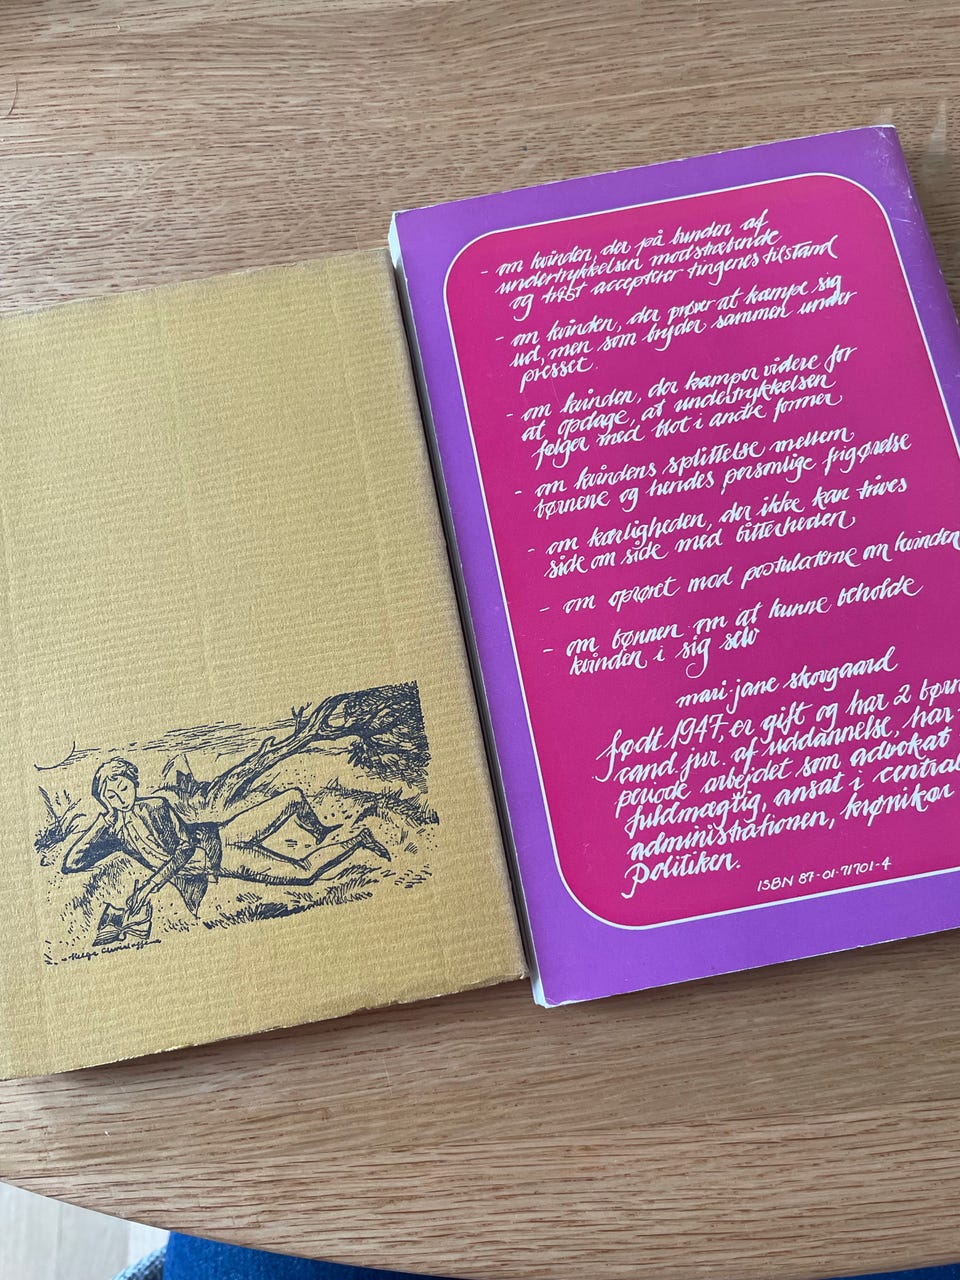 - om kvinden, der på bunden af
undertrykkelsen modstræbende
og træt accepterer tingenes tilstand
- om kvinden, der prøver at kæmpe sig
ud, men som bryder sammen under
presset.
- om kvinden, der kæmper videre for
at opdage, at undertrykkelsen
følger med blot i andre former
- om kvindens splittelse mellem
børnene og hendes personlige frigørelse
- om kærligheden, der ikke kan trives
side om side med bitterheden
- om oprøret mod postulaterne om kvinden
- om bønnen om at kunne beholde
kvinden i sig selv
mari-jane skovgaard
født 1947, er gift og har 2 børn
cand. jur. af uddannelse, har
periode arbejdet som advokat
fuldmægtig, ansat i central
administrationen, kronikør
Politiken.
ISBN 87-01-71701-4
Helge